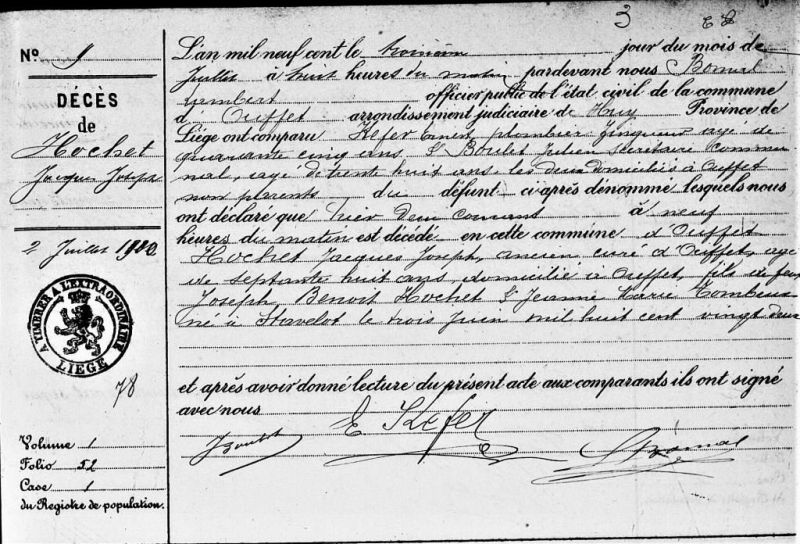 3
Nº 1
DÉCÈS
de
Hochet
Jacques Joseph
2 Juillet 1900
A TIMBRER A L'EXTRAORDINAIRE
LIEGE
78
Volume 1
Folio 52
Case 1
du Registre de population.
L'an mil neuf cent le troisième jour du mois de
Juillet à huit heures du matin pardevant nous Bomal
Lambert officier public de l'état civil de la commune
d'Ouffet arrondissement judiciaire de Huy Province de
Liége ont comparu Kefer Ernest, plombier zingueur, age de
quarante cinq ans, & Boulet Julien Secretaire Commu
nal, age de trente huit ans, les deux domiciliés à Ouffet
non parents du défunt ci-après dénommé lesquels nous
ont déclaré que hier deux courant à neuf
heures du matin est décédé en cette commune d'Ouffet
Hochet Jacques Joseph, ancien curé d'Ouffet, age
de septante huit ans domicilié à Ouffet, fils de feu
Joseph, Benoit Hochet & Jeanne Marie
né à Stavelot le trois Juin mil huit cent vingt deux
et après avoir donné lecture du présent acte aux comparants ils ont signé
avec nous
J Boulet E Kefer L Bomal